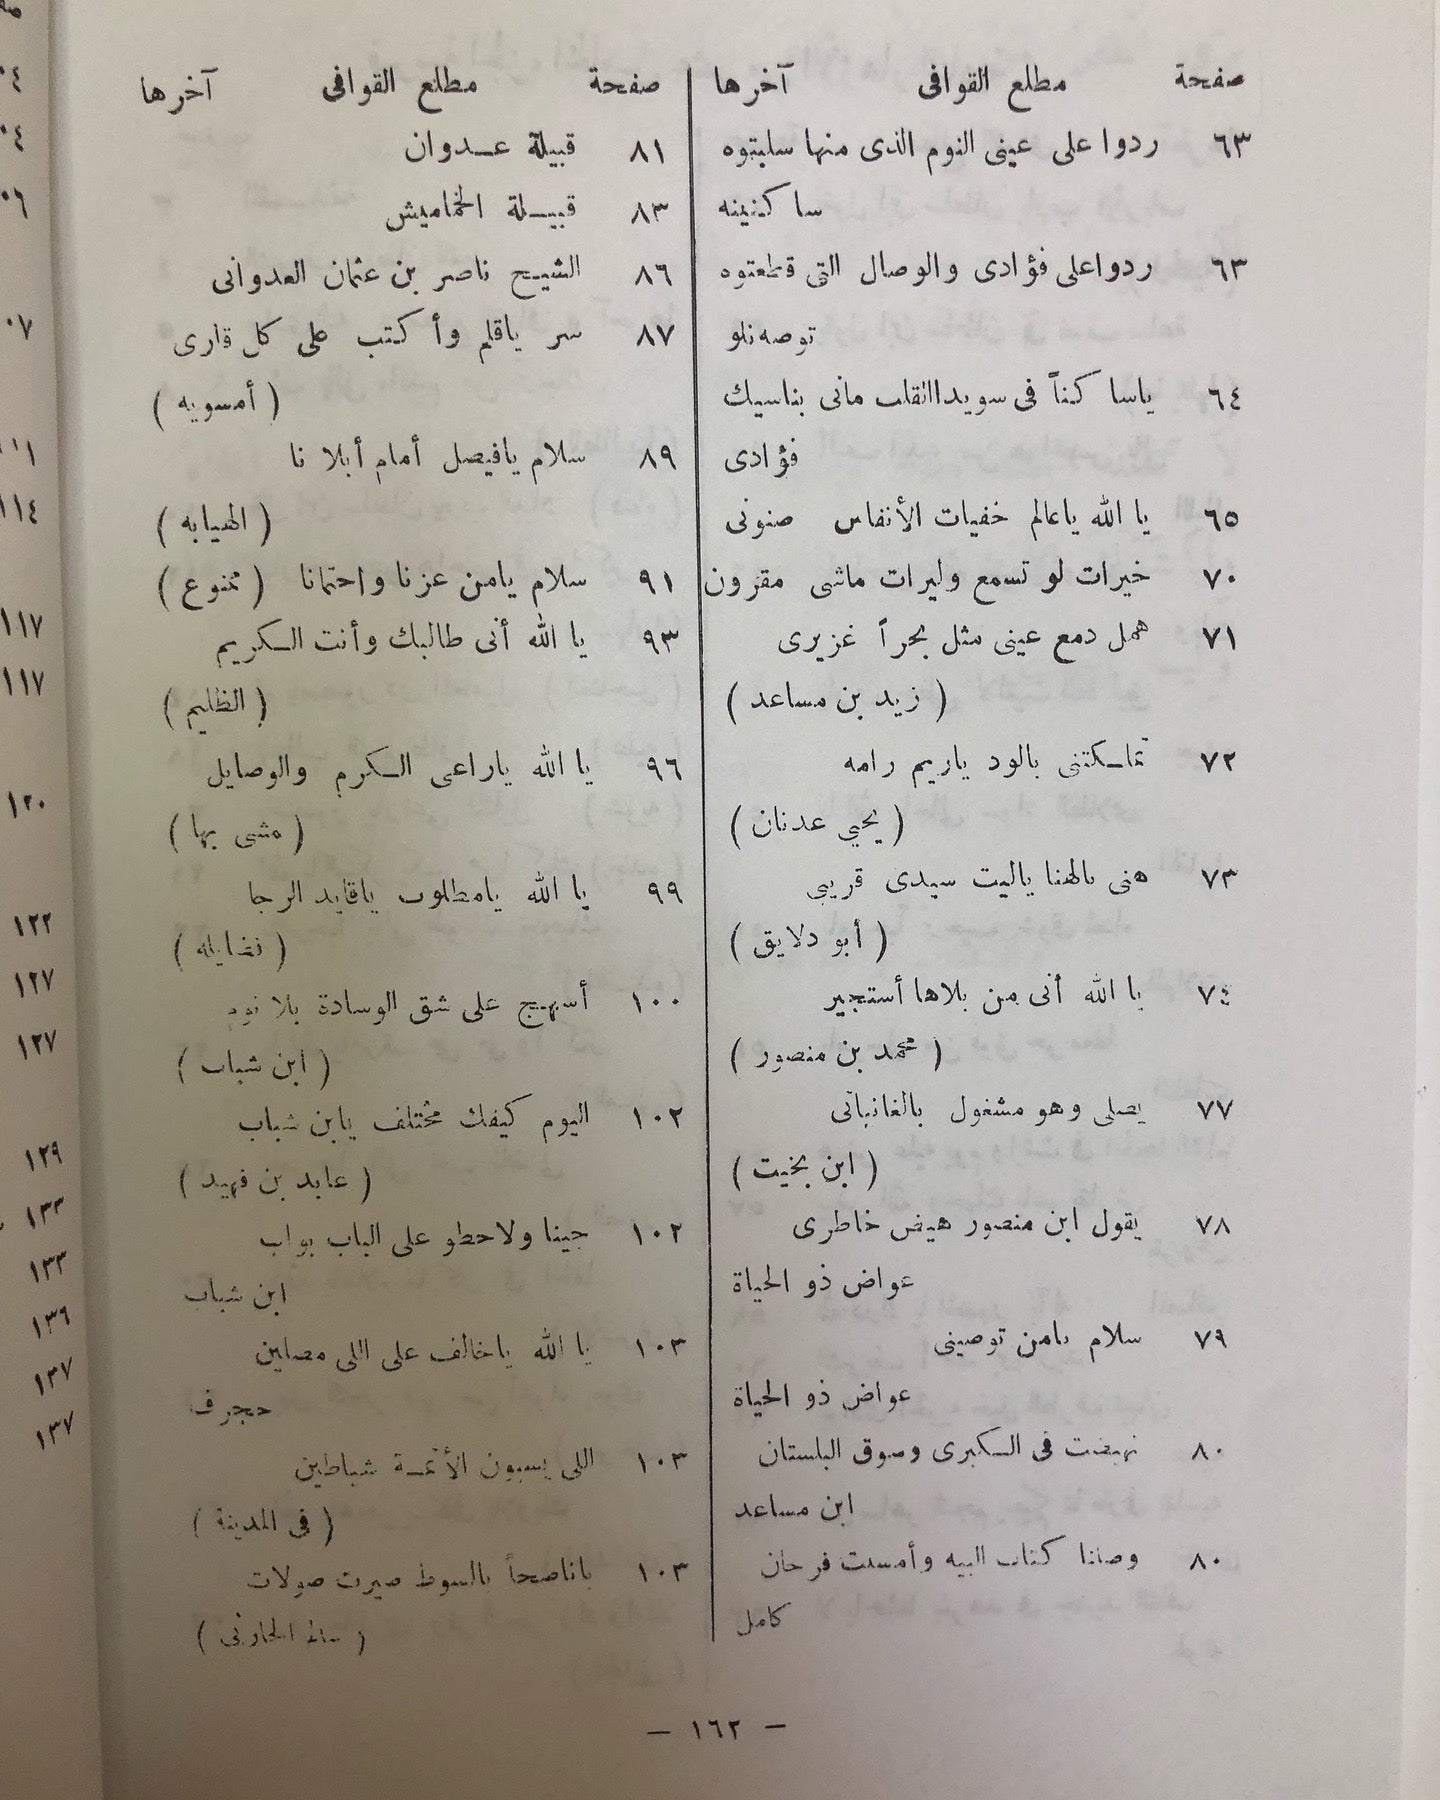 صفحة مطلع القوافى آخرها
٦٣ ردوا على عينى النوم الذى منها سلبتوه
ساكنينه
٦٣ ردواعلى فؤادى والوصال التى قطعتوه
توصه نلو
٦٤ ياسا كناً فى سويداالقلب مانى بناسيك
فؤادى
٦٥ يا الله ياعالم خفيات الأنفاس صنونى
٧٠ خيرات لو تسمع وليرات ماشى مقرون
٧١ همل دمع عينى مثل بحراً غزيرى
( زيد بن مساعد )
٧٢ تماسكتنى بالود ياريم رامه
( يحيي عدنان )
٧٣ هنى بالهنا ياليت سيدى قريبى
( أبو دلايق )
٧٤ يا الله أنى من بلاها أستجير
( محمد بن منصور )
٧٧ يصلى وهو مشغول بالغانياتى
( ابن بخيت )
٧٨ يقول ابن منصور هيض خاطرى
عواض ذو الحياة
٧٩ سلام يامن توصينى
عواض ذو الحياة
٨٠ نهضت فى الكبرى وسوق البلستان
ابن مساعد
٨٠ وصلنا كتاب البيه وأمسيت فرحان
كامل
صفحة مطلع القوافى آخرها
٨١ قبيلة عدوان
٨٣ قبيلة الخماميش
٨٦ الشيخ ناصر بن عثمان العدوانى
٨٧ سر ياقلم وأكتب على كل قارى
( أمسويه )
٨٩ سلام يافيصل أمام أبلا نا
( الهيابه )
٩١ سلام يامن عزنا واحتمانا ( ممنوع )
٩٣ يا الله أنى طالبك وأنت الكريم
( الظليم )
٩٦ يا الله ياراعى الكرم والوصايل
( مشى بها )
٩٩ يا الله يامطلوب ياقايد الرجا
( نفايله )
١٠٠ أسهج على شق الوسادة بلا نوم
( ابن شباب )
١٠٢ اليوم كيفك مختلف يابن شباب
( عابد بن فهيد )
١٠٢ جينا ولاحطو على الباب بواب
ابن شباب
١٠٣ يا الله ياخالف على اللى مصلين
حجرف
١٠٣ اللى يسبون الأئمة شباطين
( فى المدينة )
١٠٣ ياناصحاً بالسوط صيرت صولات
الحارثى )
— ١٦٢ —
١١٤
١١٧
١١٧
١٢٠
١٢٢
١٢٧
١٢٧
١٢٩
١٣٣
١٣٣
١٣٦
١٣٧
١٣٧